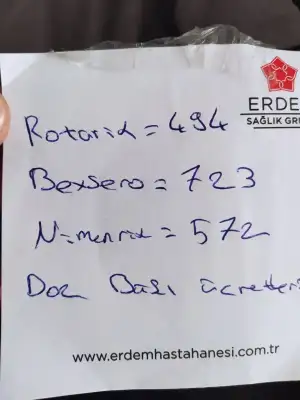 ERDE
SAĞLIK GR
Rotarix = 494
Bexsero = 723
Nimenrix = 572
Doz Başı ücretleri
www.erdemhastahanesi.com.tr